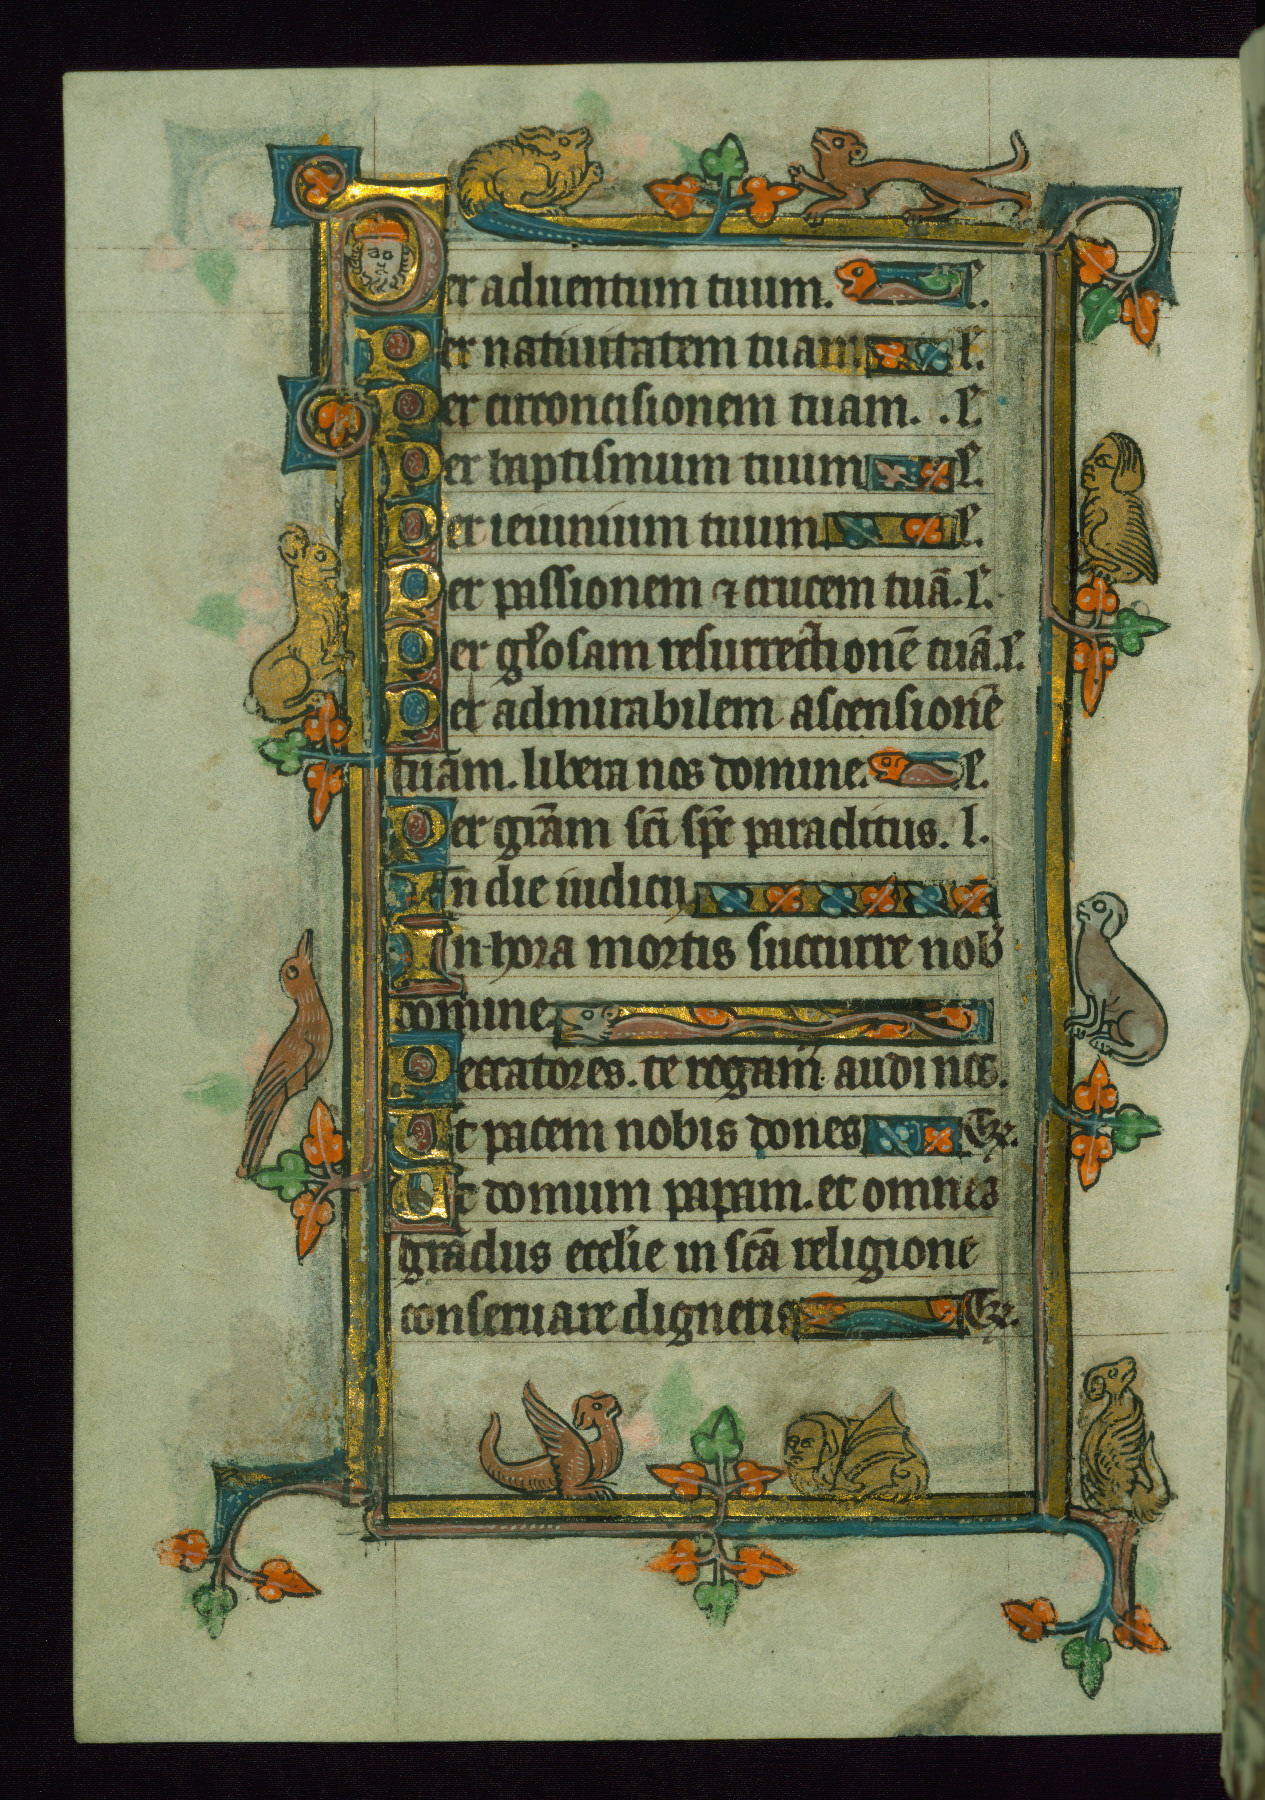 Per aduentum tuum. l'.
Per natiuitatem tuam l'.
Per circoncisionem tuam. . l'.
Per baptismum tuum l'.
Per ieiunium tuum l'.
Per passionem ⁊ crucem tuā. l'.
Per gl'osam resurrectionē tuā. l'.
Per admirabilem ascensionē
tuam. libera nos domine. l'.
Per grām sc̄i sp̄c paraclitus. l.
In die iudicii
In hora mortis succurre nob'
domine
Peccatores. te rogam̄ audi nos.
Ut pacem nobis dones Te.
Ut domum papam. et omnes
gradus eccl'ie in sc̄a religione
conseruare digneris Te.